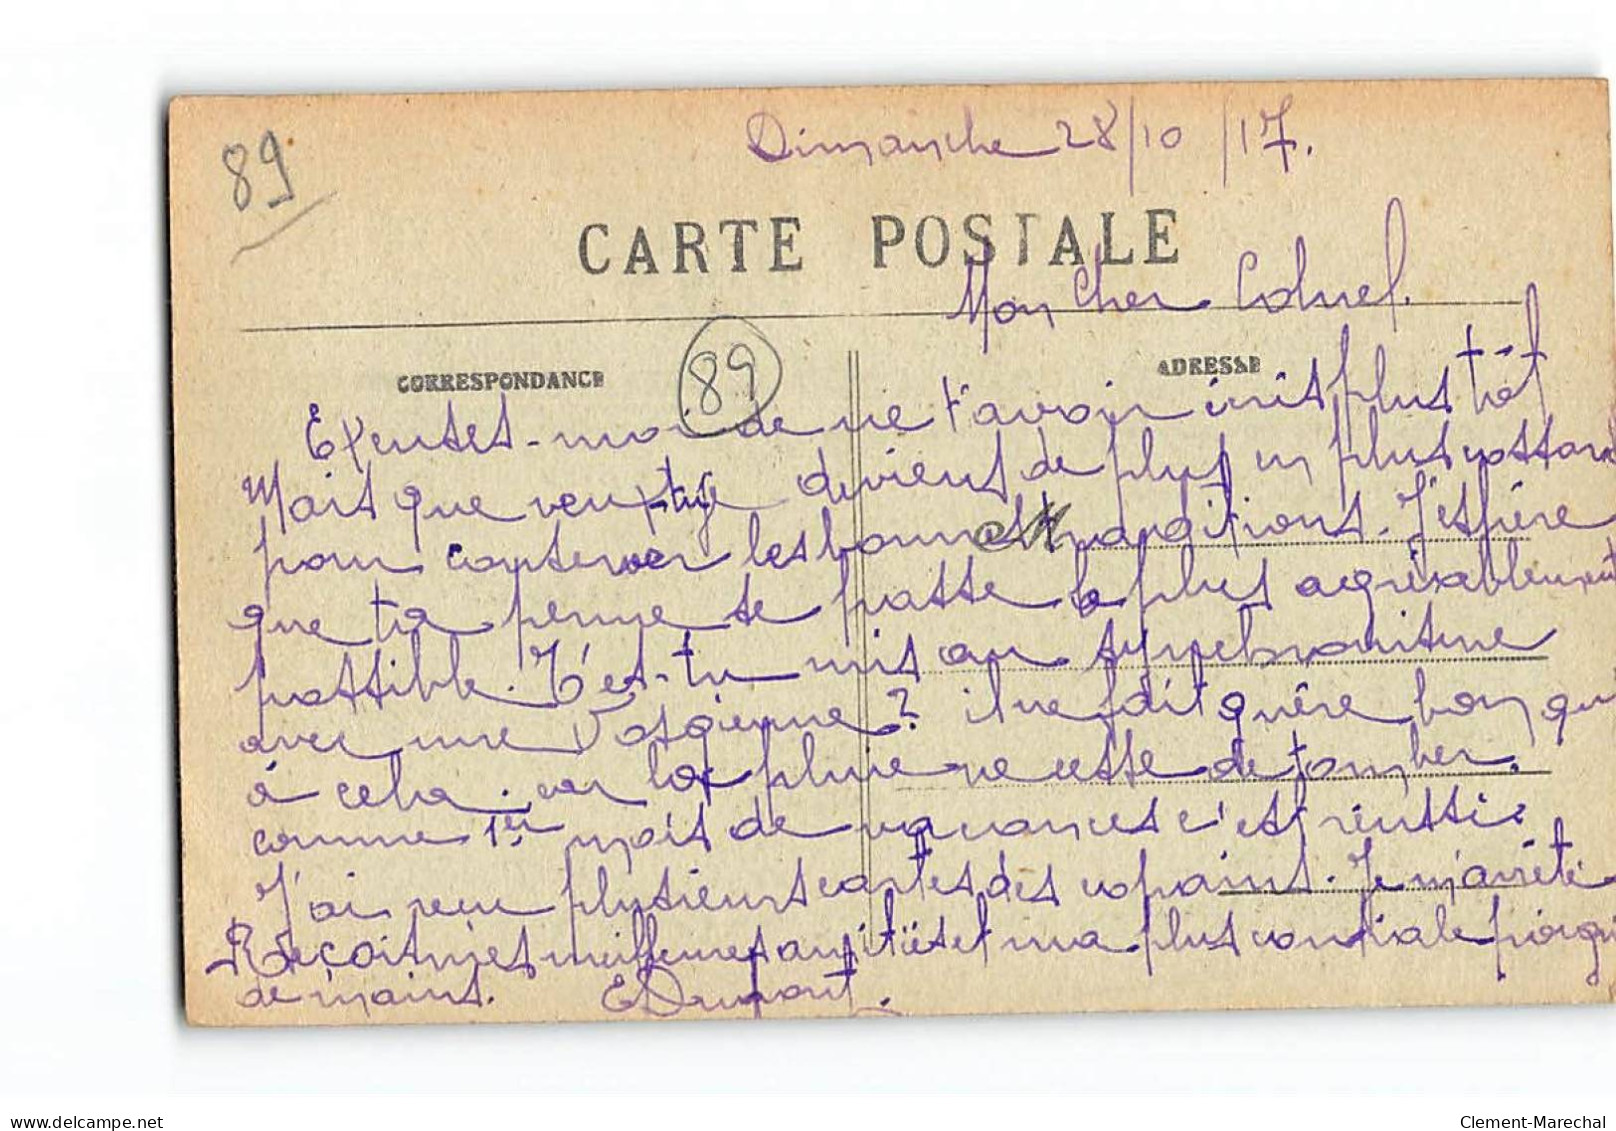 89
Dimanche 28/10/17.
CARTE POSTALE
Mon Cher Colonel.
CORRESPONDANCE
89
ADRESSE
Excuses-moi de ne t'avoir écrit plus tôt
Mais que veux-tu je deviens de plus en plus cossard
pour conserver les bonnes traditions. J'espère
que ta perme se passe le plus agréablement
possible. T'es-tu mis au synchronisme
avec une Vosgienne? il ne fait guère bon qu
à cela. car la pluie ne cesse de tomber.
comme 1er mois de vacances c'est réussi.
J'ai reçu plusieurs cartes des copains. Je m'arrête
Reçoit mes meilleures amitiés et ma plus cordiale poign
de mains. EDupont.
delcampe.net
Clement-Marechal